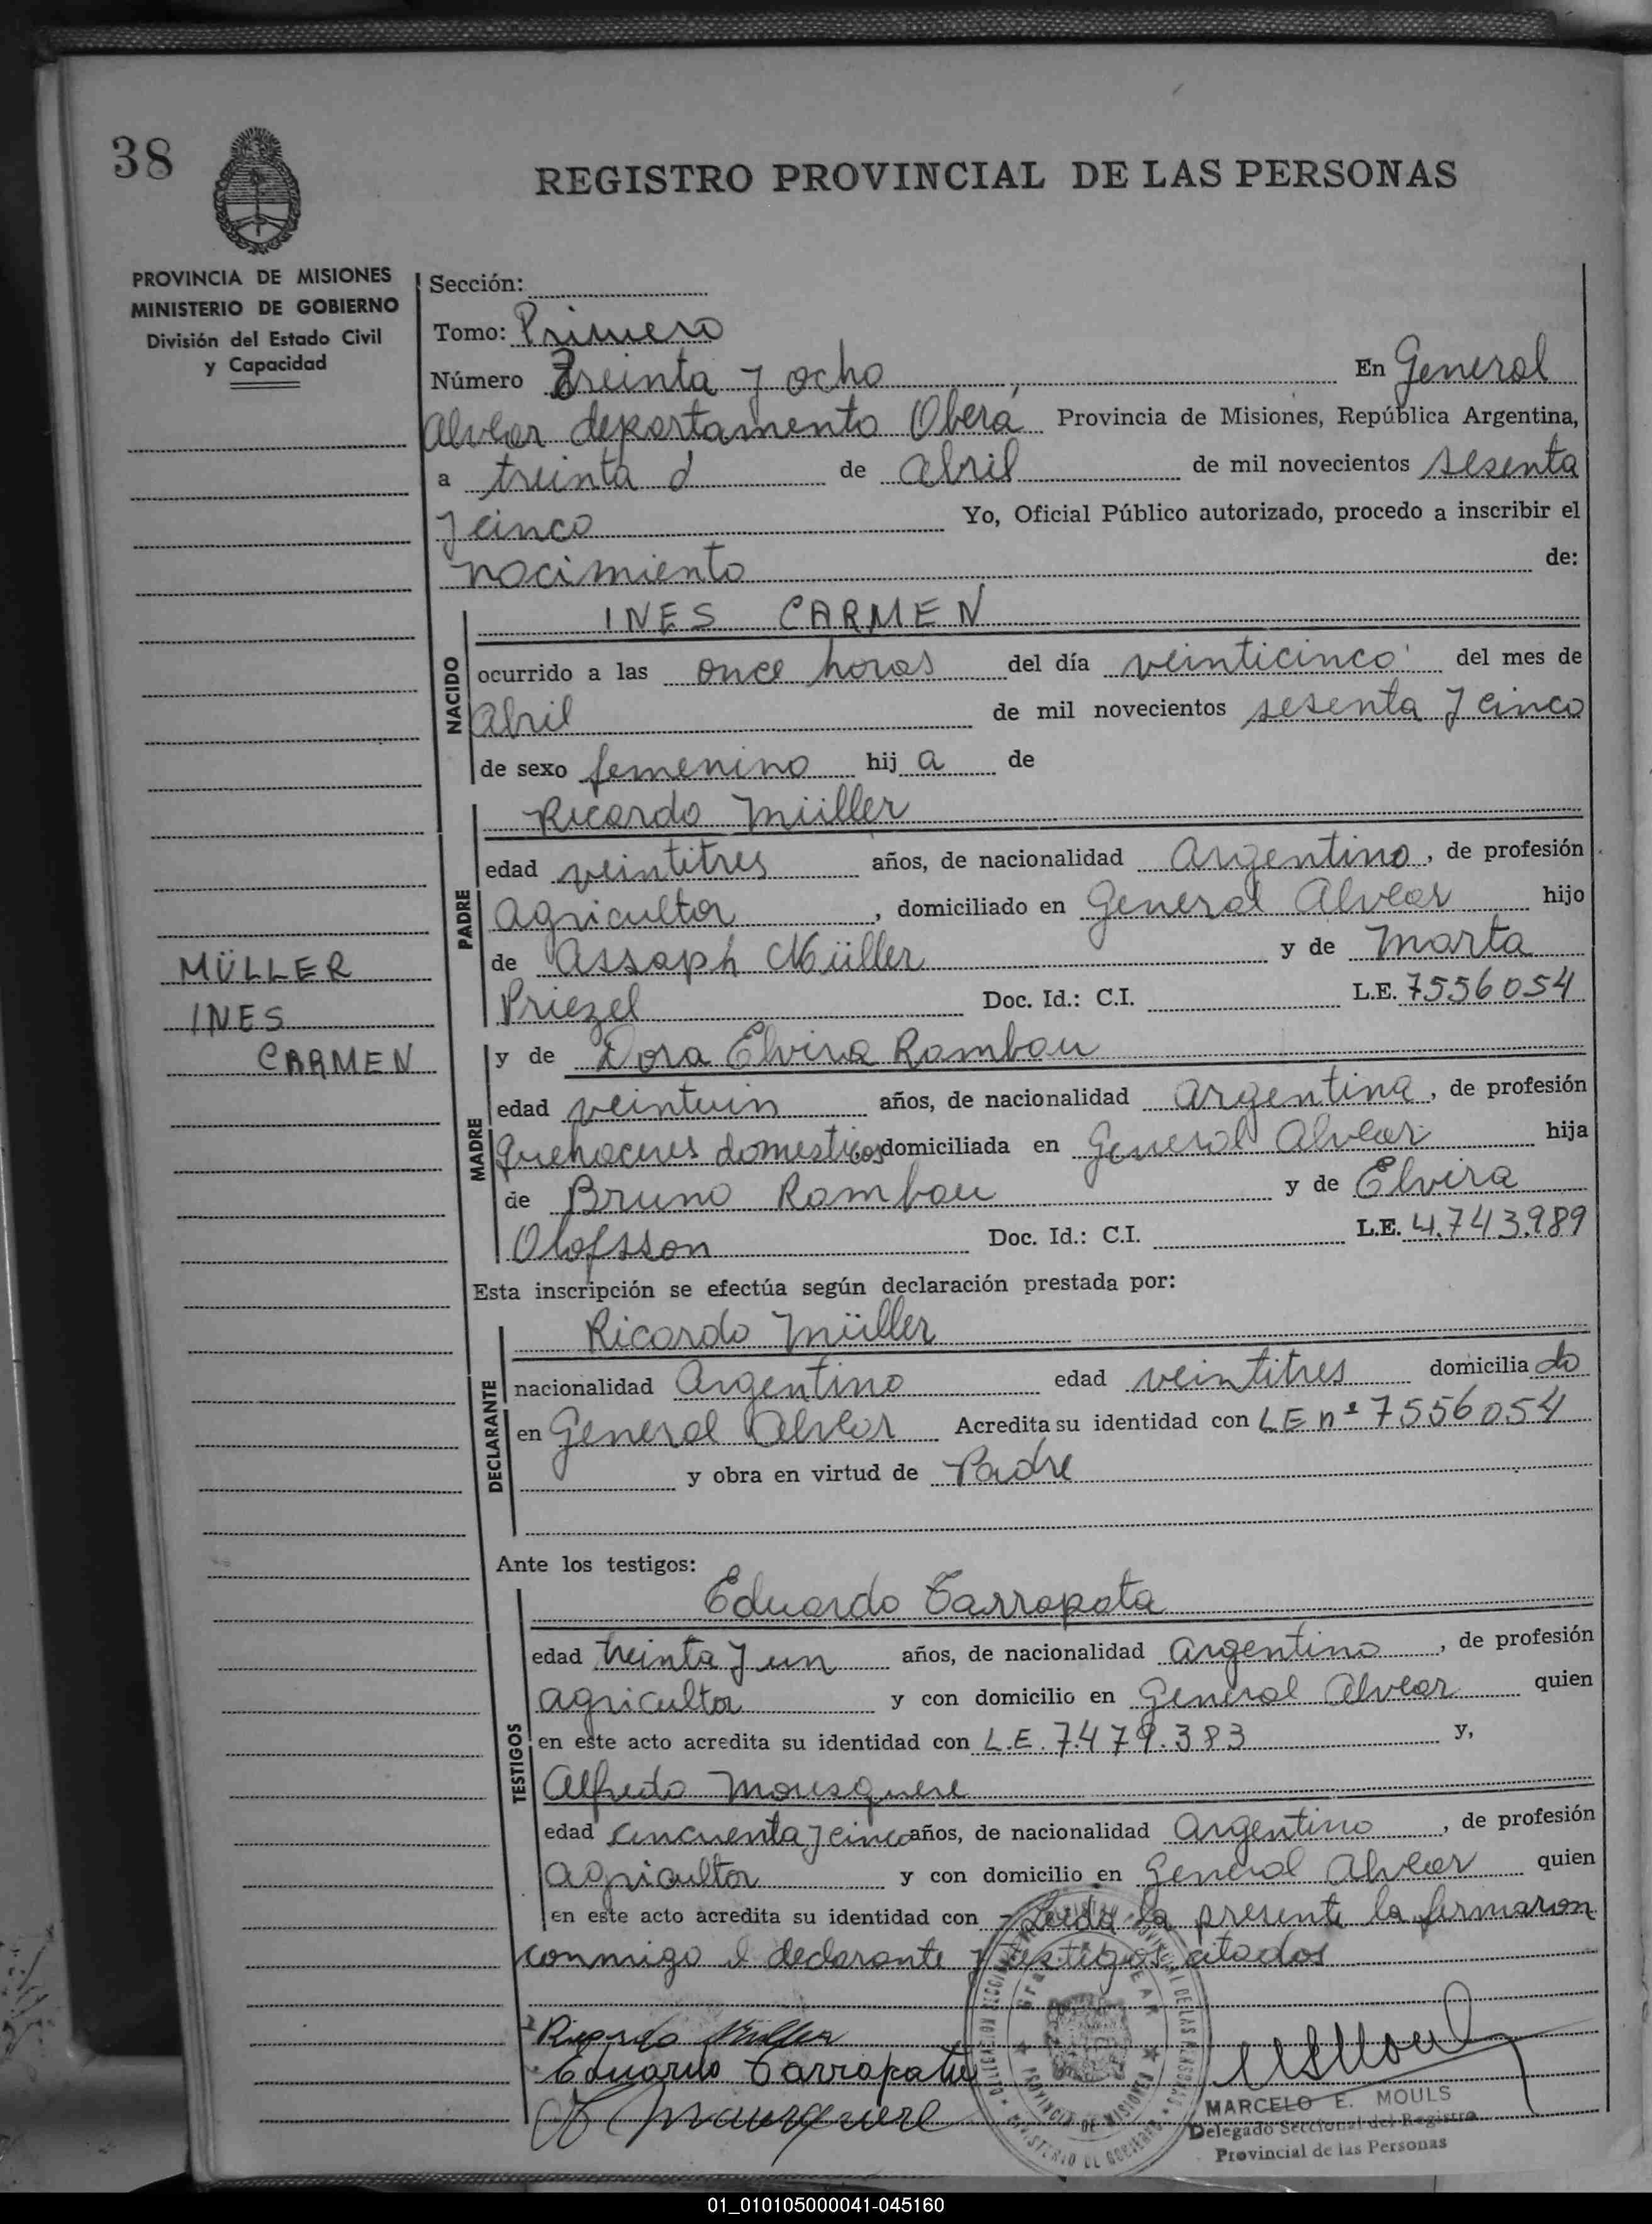 38
REGISTRO PROVINCIAL DE LAS PERSONAS
PROVINCIA DE MISIONES
MINISTERIO DE GOBIERNO
División del Estado Civil
y Capacidad
Sección:
Tomo: Primero
Número Treinta y ocho En General
Alvear departamento Oberá Provincia de Misiones, República Argentina,
a treinta d de Abril de mil novecientos sesenta
y cinco Yo, Oficial Público autorizado, procedo a inscribir el
nacimiento de:
NACIDO
INES CARMEN
ocurrido a las once horas del día veinticinco del mes de
Abril de mil novecientos sesenta y cinco
de sexo femenino hij a de
PADRE
Ricardo Müller
edad veintitres años, de nacionalidad Argentino, de profesión
agricultor, domiciliado en General Alvear hijo
de Assaph Müller y de Marta
Priezel Doc. Id.: C.I. L.E. 7556054
MÜLLER
INES
CARMEN
MADRE
y de Dora Elvira Rambou
edad veintiun años, de nacionalidad Argentina, de profesión
quehaceres domesticos domiciliada en General Alvear hija
de Bruno Rambou y de Elvira
Olofsson Doc. Id.: C.I. L.E. 4.743.989
Esta inscripción se efectúa según declaración prestada por:
DECLARANTE
Ricardo Müller
nacionalidad Argentino edad veintitres domicilia do
en General Alvear Acredita su identidad con LE nº 7556054
y obra en virtud de Padre
Ante los testigos:
TESTIGOS
Eduardo Carrapata
edad treinta y un años, de nacionalidad Argentino, de profesión
agricultor y con domicilio en General Alvear quien
en este acto acredita su identidad con L.E. 7.479.383 y,
Alfredo Mousquere
edad cincuenta y cinco años, de nacionalidad Argentino, de profesión
Agricultor y con domicilio en General Alvear quien
en este acto acredita su identidad con - Leida la presente la firmaron
conmigo el declarante y testigos citados
Ricardo Müller
Eduardo Carrapata
MARCELO E. MOULS
Delegado Seccional del Registro
Provincial de las Personas
PROVINCIA DE MISIONES
MINISTERIO DE GOBIERNO
01_010105000041-045160